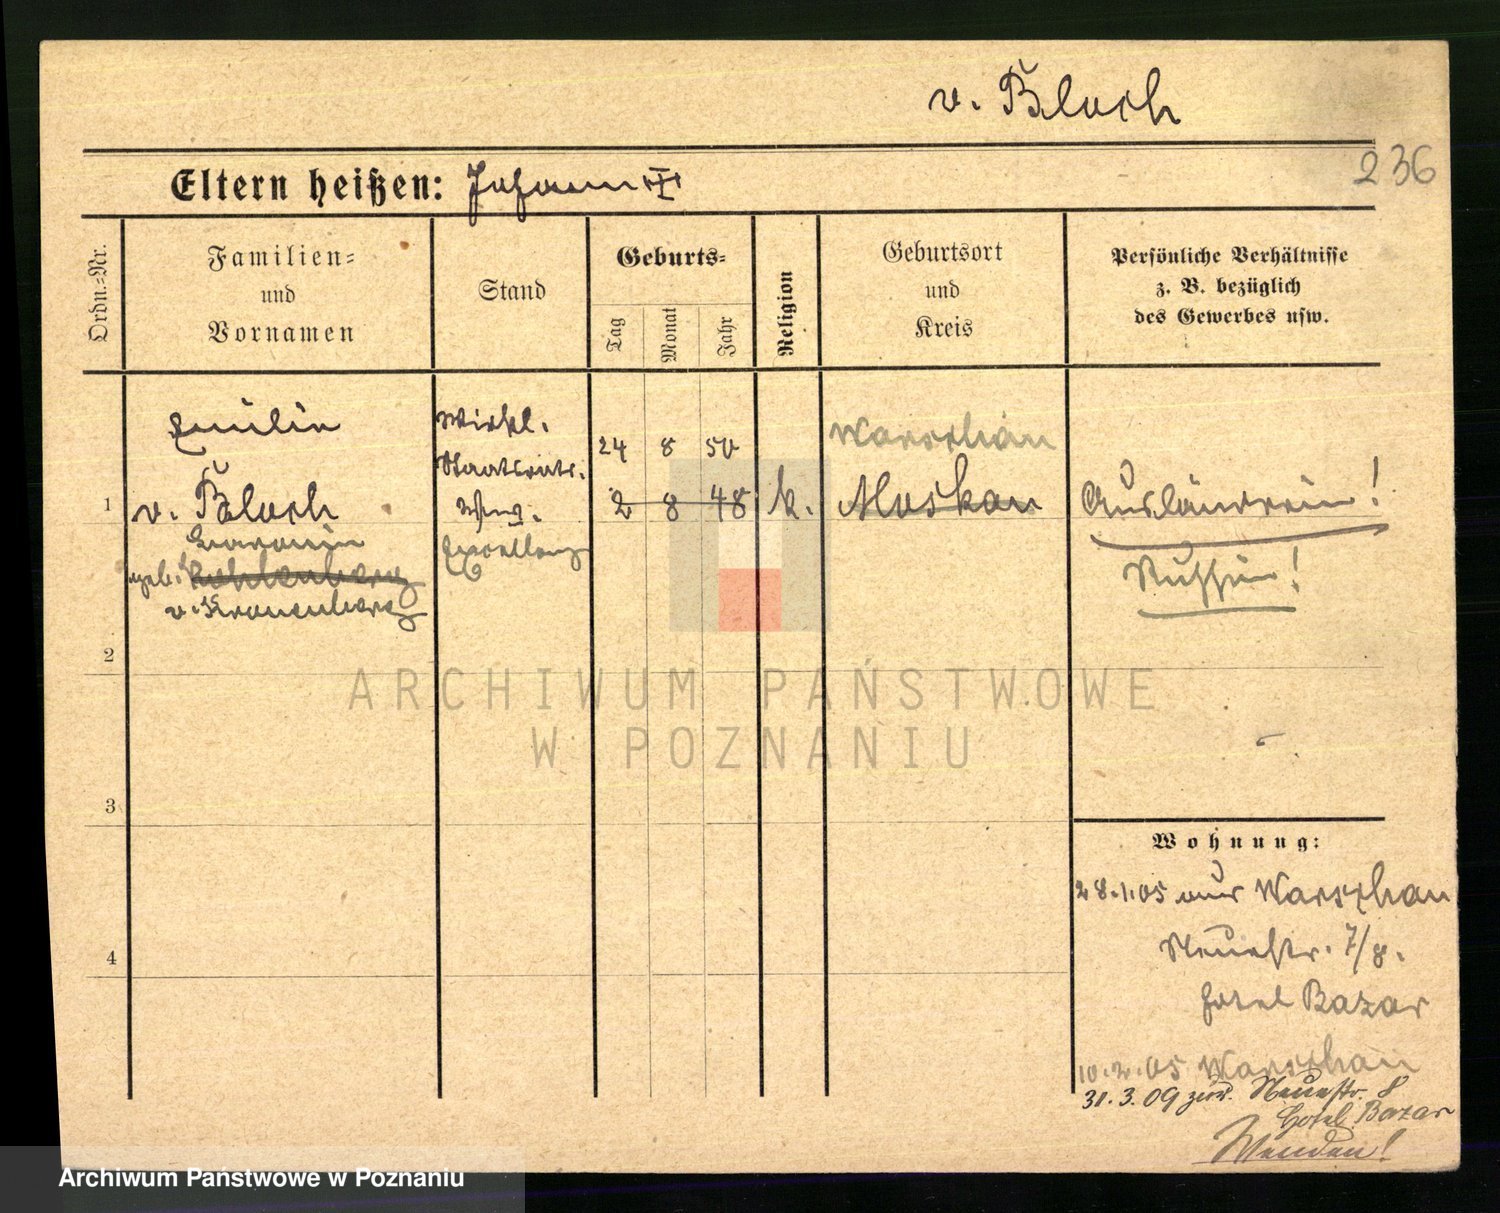 v. Bloch
236
Eltern heißen: Johann
Ordn.-Nr.
Familien-
und
Vornamen
Stand
Geburts-
Tag
Monat
Jahr
Religion
Geburtsort
und
Kreis
Persönliche Verhältnisse
z. B. bezüglich
des Gewerbes usw.
1
Emilie
v. Bloch
Baronin
geb. Kohlenberg
v. Kronenberg
Wirkl.
Staatsrats-
Exzellenz
24 8 50
2 8 48
k.
Warschau
Moskau
Ausländerin!
Russin!
2
3
4
ARCHIWUM PAŃSTWOWE
W POZNANIU
Wohnung:
28.1.05 aus Warschau
Neuestr. 7/8.
Hotel Bazar
10.2.05 Warschau
31.3.09 zur. Neuestr. 8
Hotel Bazar
Wenden!
Archiwum Państwowe w Poznaniu